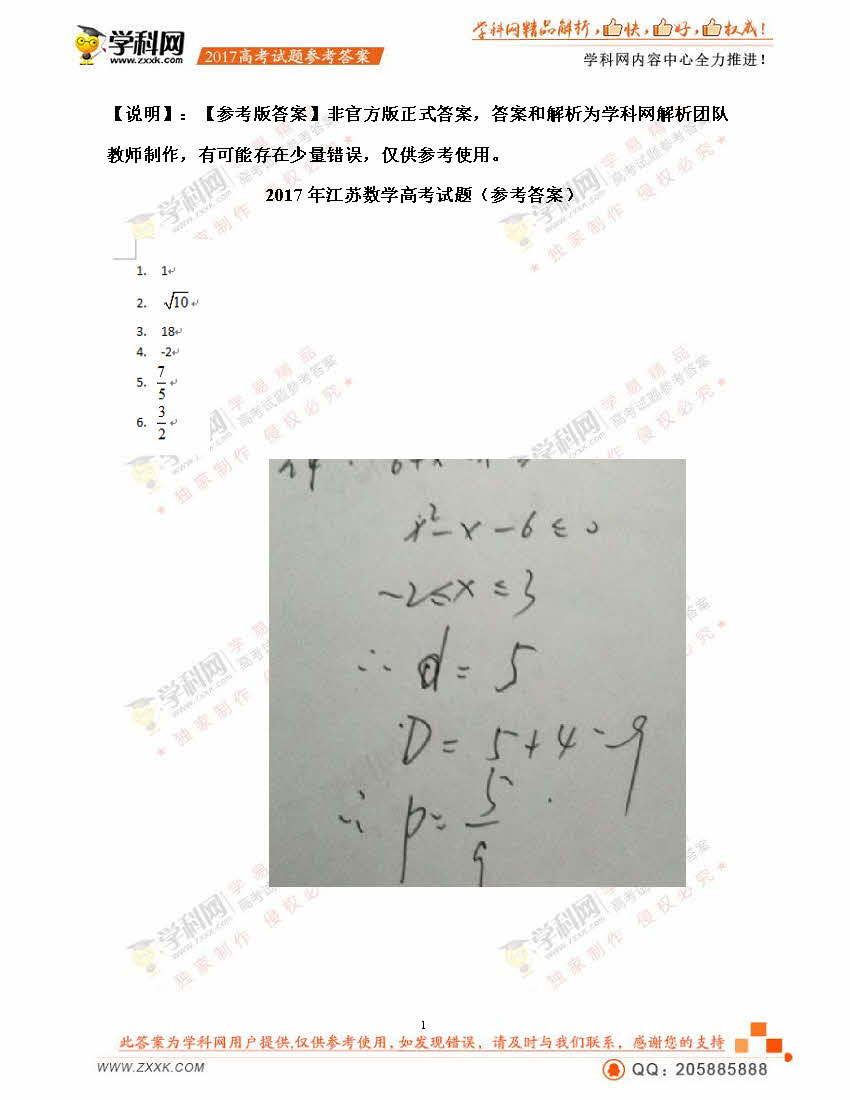 学科网
www.zxxk.com
2017高考试题参考答案
学科网精品解析,快,好,权威!
学科网内容中心全力推进!
【说明】:【参考版答案】非官方版正式答案,答案和解析为学科网解析团队
教师制作,有可能存在少量错误,仅供参考使用。
2017 年江苏数学高考试题(参考答案)
1. 1
2. √10
3. 18
4. -2
5. 7/5
6. 3/2
x²-x-6≤0
-2≤x≤3
∴ d = 5
D = 5+4=9
∴ p = 5/9
1
此答案为学科网用户提供,仅供参考使用,如发现错误,请及时与我们联系,感谢您的支持
WWW.ZXXK.COM
QQ: 205885888